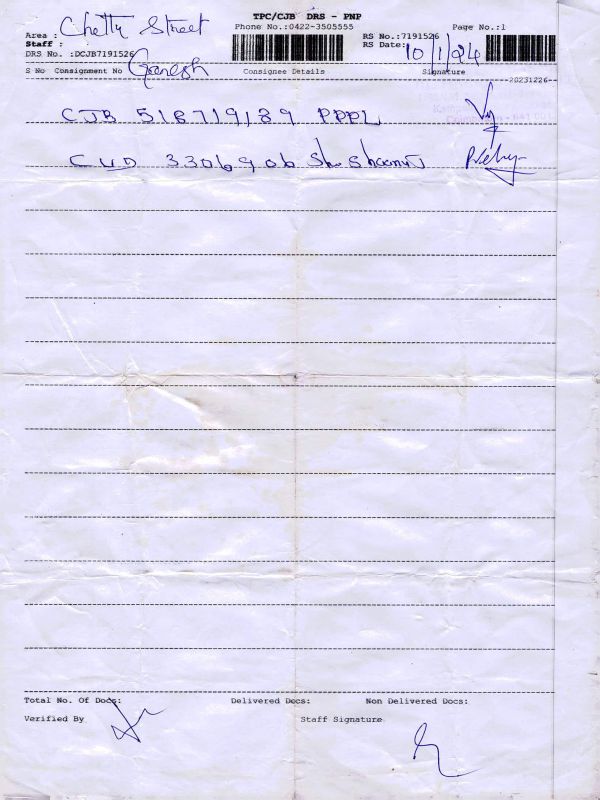 TPC/CJB DRS - PNP
Phone No.:0422-3505555 Page No.:1
Area : Chetty Street RS No.:7191526
Staff : RS Date: 10/1/24
DRS No. :DCJB7191526
S No Consignment No Ganesh Consignee Details Signature
20231226
CJB 518719189 PPPL
CUD 3306906
Total No. Of Docs: Delivered Docs: Non Delivered Docs:
Verified By Staff Signature